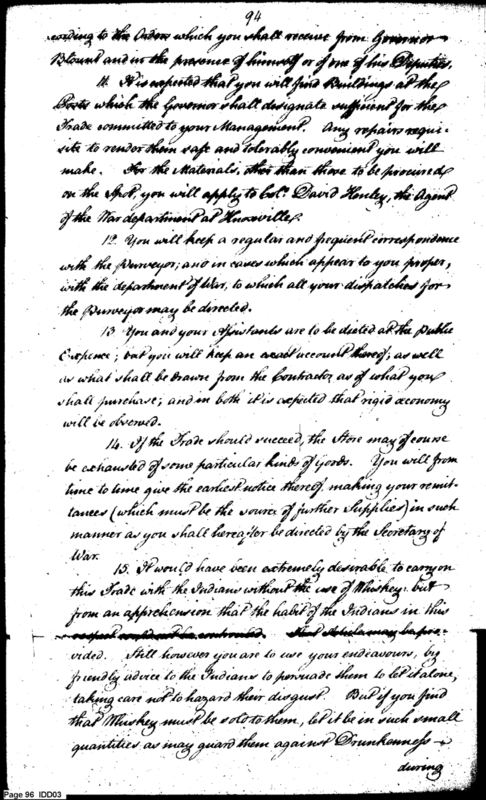 94
cording to the Orders which you shall receive from Governor
Blount and in the presence of himself or of one of his Deputies.
11. It is expected that you will find Buildings at the
Posts which the Governor shall designate sufficient for the
Trade committed to your Management. Any repairs requi-
site to render them safe and tolerably convenient you will
make. For the Materials, other than those to be procured
on the Spot, you will apply to Col. David Henley, the Agent
of the War department at Knoxville.
12. You will keep a regular and frequent correspondence
with the Purveyor; and in cases which appear to you proper,
with the department of War, to which all your dispatches for
the Purveyor may be directed.
13 You and your Assistants are to be dieted at the Public
Expence; but you will keep an exact account thereof, as well
as what shall be drawn from the Contractor as of what you
shall purchase; and in both it is expected that rigid œconomy
will be observed.
14. If the Trade should succeed, the Store may of course
be exhausted of some particular kinds of goods. You will from
time to time give the earliest notice thereof, making your remit-
tances (which must be the source of further Supplies) in such
manner as you shall hereafter be directed by the Secretary of
War.
15. It would have been extremely desirable to carry on
this Trade with the Indians without the use of Whiskey: but
from an apprehension that the habit of the Indians in this
respect cannot be controuled, that Article may be pro-
vided. Still however you are to use your endeavours, by
friendly advice to the Indians to persuade them to let it alone,
taking care not to hazard their disgust. But if you find
that Whiskey must be sold to them, let it be in such small
quantities as may guard them against Drunkenness
during
Page 96 IDD03